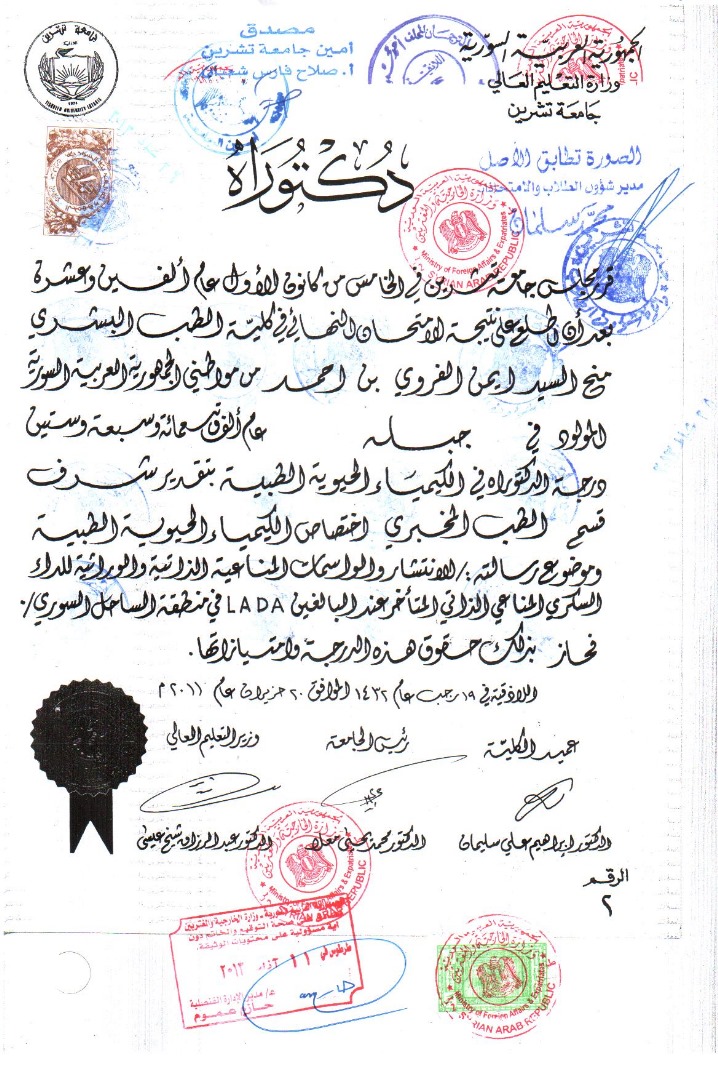 الجمهورية العربية السورية
وزارة التعليم العالي
جامعة تشرين
مصدق
امين جامعة تشرين
أ. صلاح فارس شعبان
الصورة تطابق الأصل
مدير شؤون الطلاب والامتحانات
محمد سلمان
دكتوراه
قرر مجلس جامعة تشرين في الخامس من كانون الأول عام ألفين وعشرة
بعد أن اطلع على نتيجة الامتحان النهائي في كلية الطب البشري
منح السيد ايمن الفروي بن احمد من مواطني الجمهورية العربية السورية
المولود في جبله عام ألف وتسعمائة وسبعة وستين
درجة الدكتوراه في الكيمياء الحيوية الطبية بتقدير شرف
قسم الطب المخبري اختصاص الكيمياء الحيوية الطبية
وموضوع رسالته :/الانتشار والواسمات المناعية الذاتية والوراثية للداء
السكري المناعي الذاتي المتأخر عند البالغين LADA في منطقة الساحل السوري/.
فحاز بذلك حقوق هذه الدرجة وامتيازاتها.
اللاذقية في ١٩ رجب عام ١٤٣٢ الموافق ٢٠ حزيران عام ٢٠١١ م
عميد الكلية رئيس الجامعة وزير التعليم العالي
الدكتور ابراهيم علي سليمان الدكتور محمد يحيى معلا الدكتور عبد الرزاق شيخ عيسى
الرقم
٢
Ministry of Foreign Affairs & Expatriates
SYRIAN ARAB REPUBLIC
وزارة الخارجية والمغتربين
صحة التوقيع والخاتم دون
أية مسؤولية على محتويات الوثيقة
طرطوس في ١١ آذار ٢٠١٣
ع/ مدير الإدارة القنصلية
Ministry of Foreign Affairs & Expatriates
SYRIAN ARAB REPUBLIC